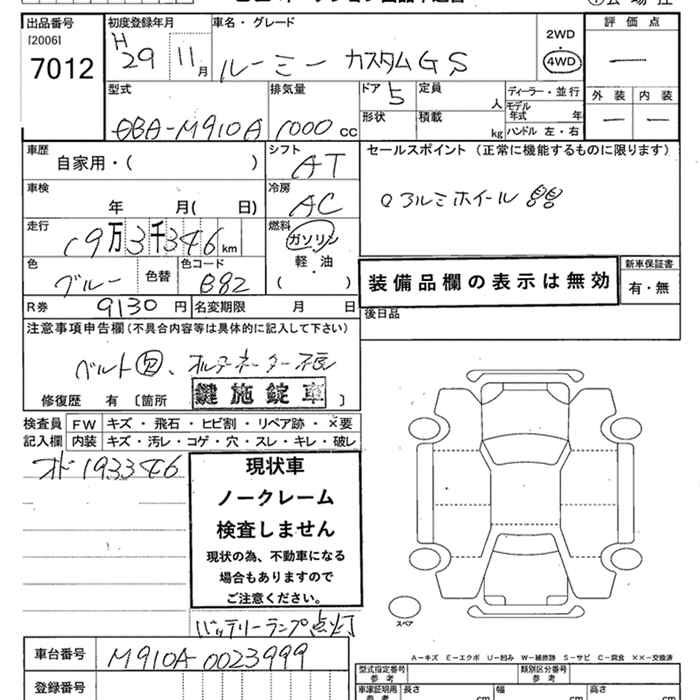 出品番号 初度登録年月 車名・グレード 評価点
[2006] H 29 11月 ルーミー カスタムGS 2WD ・ 4WD ―
7012
外装 内装
型式 排気量 ドア 5 定員 人 ディーラー・並行
DBA-M910A 1000cc 形状 積載 kg モデル年式 年
― ―
ハンドル 左・右
車歴 シフト セールスポイント (正常に機能するものに限ります)
自家用・( ) AT
車検 冷房 ○アルミホイール
年 月( 日) AC
走行 燃料
19万3千346km ガソリン
軽・油
( )
色 色替 色コード
ブルー B82
装備品欄の表示は無効
新車保証書
有・無
R券 9130円 名変期限 月 日 後日品
注意事項申告欄(不具合内容等は具体的に記入して下さい)
ベルト凹、オルタネーター不良
修復歴 有 [箇所 ]
鍵施錠車
検査員 FW キズ・飛石・ヒビ割・リペア跡・×要
記入欄 内装 キズ・汚レ・コゲ・穴・スレ・キレ・破レ
オド193346
現状車
ノークレーム
検査しません
現状の為、不動車になる
場合もありますので
ご注意ください。
バッテリーランプ点灯
スペア
車台番号 M910A-0023999
A-キズ E-エクボ U-凹み W-補修跡 S-サビ C-腐食 ××-交換済
登録番号
型式指定番号 参考 類別区分番号 参考
車庫証明用 参考 長さ cm 幅 cm 高さ cm